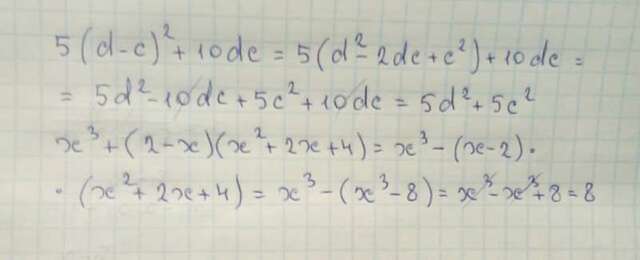 5(d-c)²+10dc=5(d²-2dc+c²)+10dc=
=5d²-10dc+5c²+10dc=5d²+5c²
x³+(2-x)(x²+2x+4)=x³-(x-2)·
·(x²+2x+4)=x³-(x³-8)=x³-x³+8=8